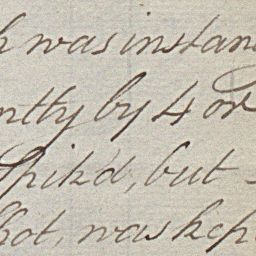 h was instan
ntly by 4 or
spik'd, but -
hot, was kep